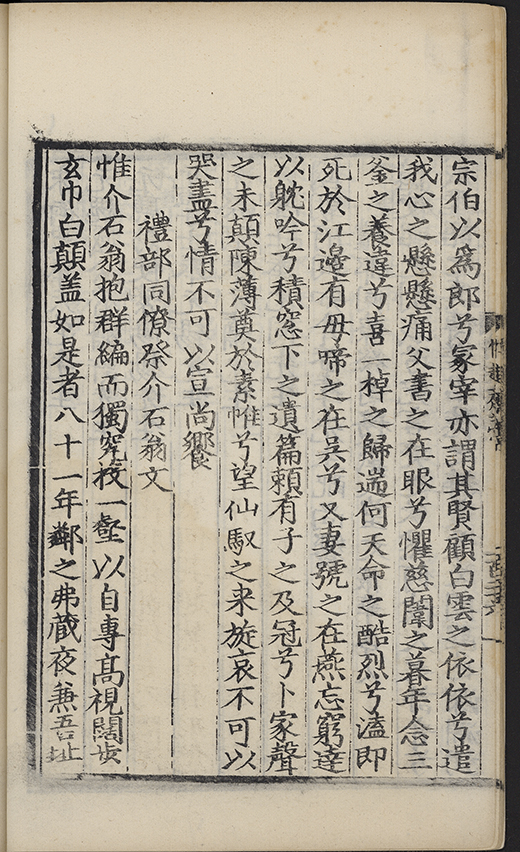 宗伯以爲郎兮冡宰亦謂其賢顧白雲之依依兮遣
我心之懸懸痛父書之在眼兮懼慈闈之暮年念三
釜之養違兮喜一棹之歸遄何天命之酷烈兮溘即
死於江邊有毋啼之在吳兮又妻號之在燕忘窮達
以躭吟兮積窓下之遺篇賴有子之及冠兮卜家聲
之未顛陳薄奠於素帷兮望仙馭之来旋哀不可以
哭盡兮情不可以宣尚饗
禮部同僚祭介石翁文
惟介石翁抱群編而獨究授一壑以自專髙視闊步
玄巾白顛盖如是者八十一年鄰之弗蔵夜兼吾址